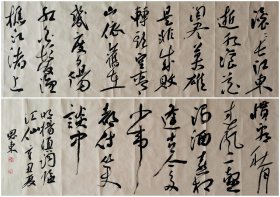 滚滚长江东
逝水浪花
淘尽英雄
是非成败
轉頭空青
山依舊在
幾度夕陽
紅白发渔
樵江渚上
惯看秋月
春风一壶
浊酒喜相
逢古今多
少事
都付笑
谈中
明杨慎词临
江仙 辛丑夏
思东